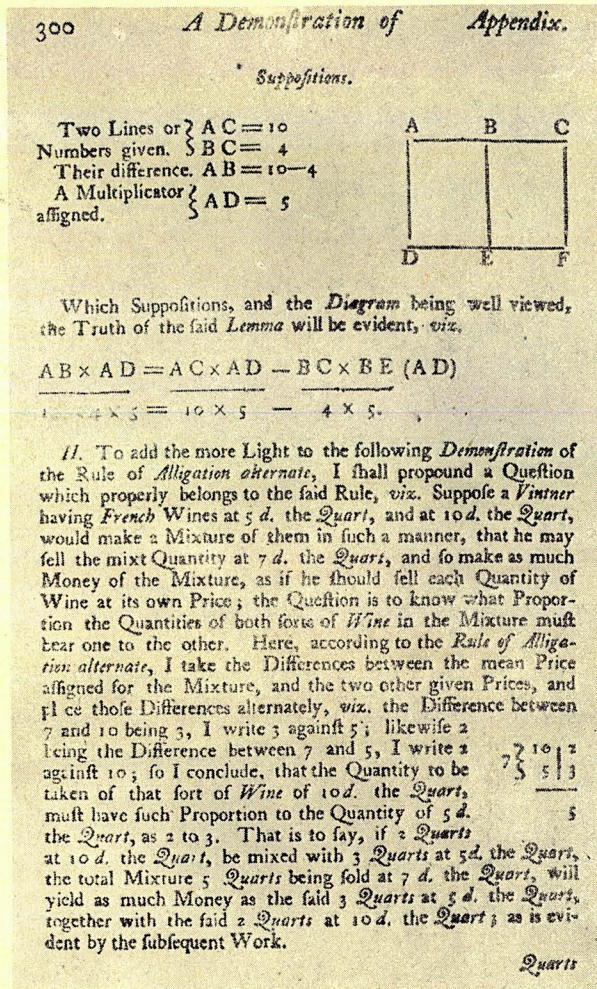 300 A Demonſtration of Appendix.
Suppoſitions.
Two Lines or } A C = 10
Numbers given. } B C = 4
Their difference. A B = 10—4
A Multiplicator } A D = 5
aſſigned.
A B C
D E F
Which Suppoſitions, and the Diagram being well viewed,
the Truth of the ſaid Lemma will be evident, viz.
A B × A D = A C × A D — B C × B E (A D)
10—4 × 5 = 10 × 5 — 4 × 5.
II. To add the more Light to the following Demonſtration of
the Rule of Alligation alternate, I ſhall propound a Queſtion
which properly belongs to the ſaid Rule, viz. Suppoſe a Vintner
having French Wines at 5 d. the Quart, and at 10 d. the Quart,
would make a Mixture of them in ſuch a manner, that he may
ſell the mixt Quantity at 7 d. the Quart, and ſo make as much
Money of the Mixture, as if he ſhould ſell each Quantity of
Wine at its own Price; the Queſtion is to know what Propor-
tion the Quantities of both ſorts of Wine in the Mixture muſt
bear one to the other. Here, according to the Rule of Alliga-
tion alternate, I take the Differences between the mean Price
aſſigned for the Mixture, and the two other given Prices, and
pl ce thoſe Differences alternately, viz. the Difference between
7 and 10 being 3, I write 3 againſt 5; likewiſe 2
being the Difference between 7 and 5, I write 2
againſt 10; ſo I conclude, that the Quantity to be
taken of that ſort of Wine of 10 d. the Quart,
muſt have ſuch Proportion to the Quantity of 5 d.
the Quart, as 2 to 3. That is to ſay, if 2 Quarts
7 } 10 | 2
5 | 3
5
at 10 d. the Quart, be mixed with 3 Quarts at 5d. the Quart,
the total Mixture 5 Quarts being ſold at 7 d. the Quart, will
yield as much Money as the ſaid 3 Quarts at 5 d. the Quart,
together with the ſaid 2 Quarts at 10 d. the Quart; as is evi-
dent by the ſubſequent Work.
Quarts